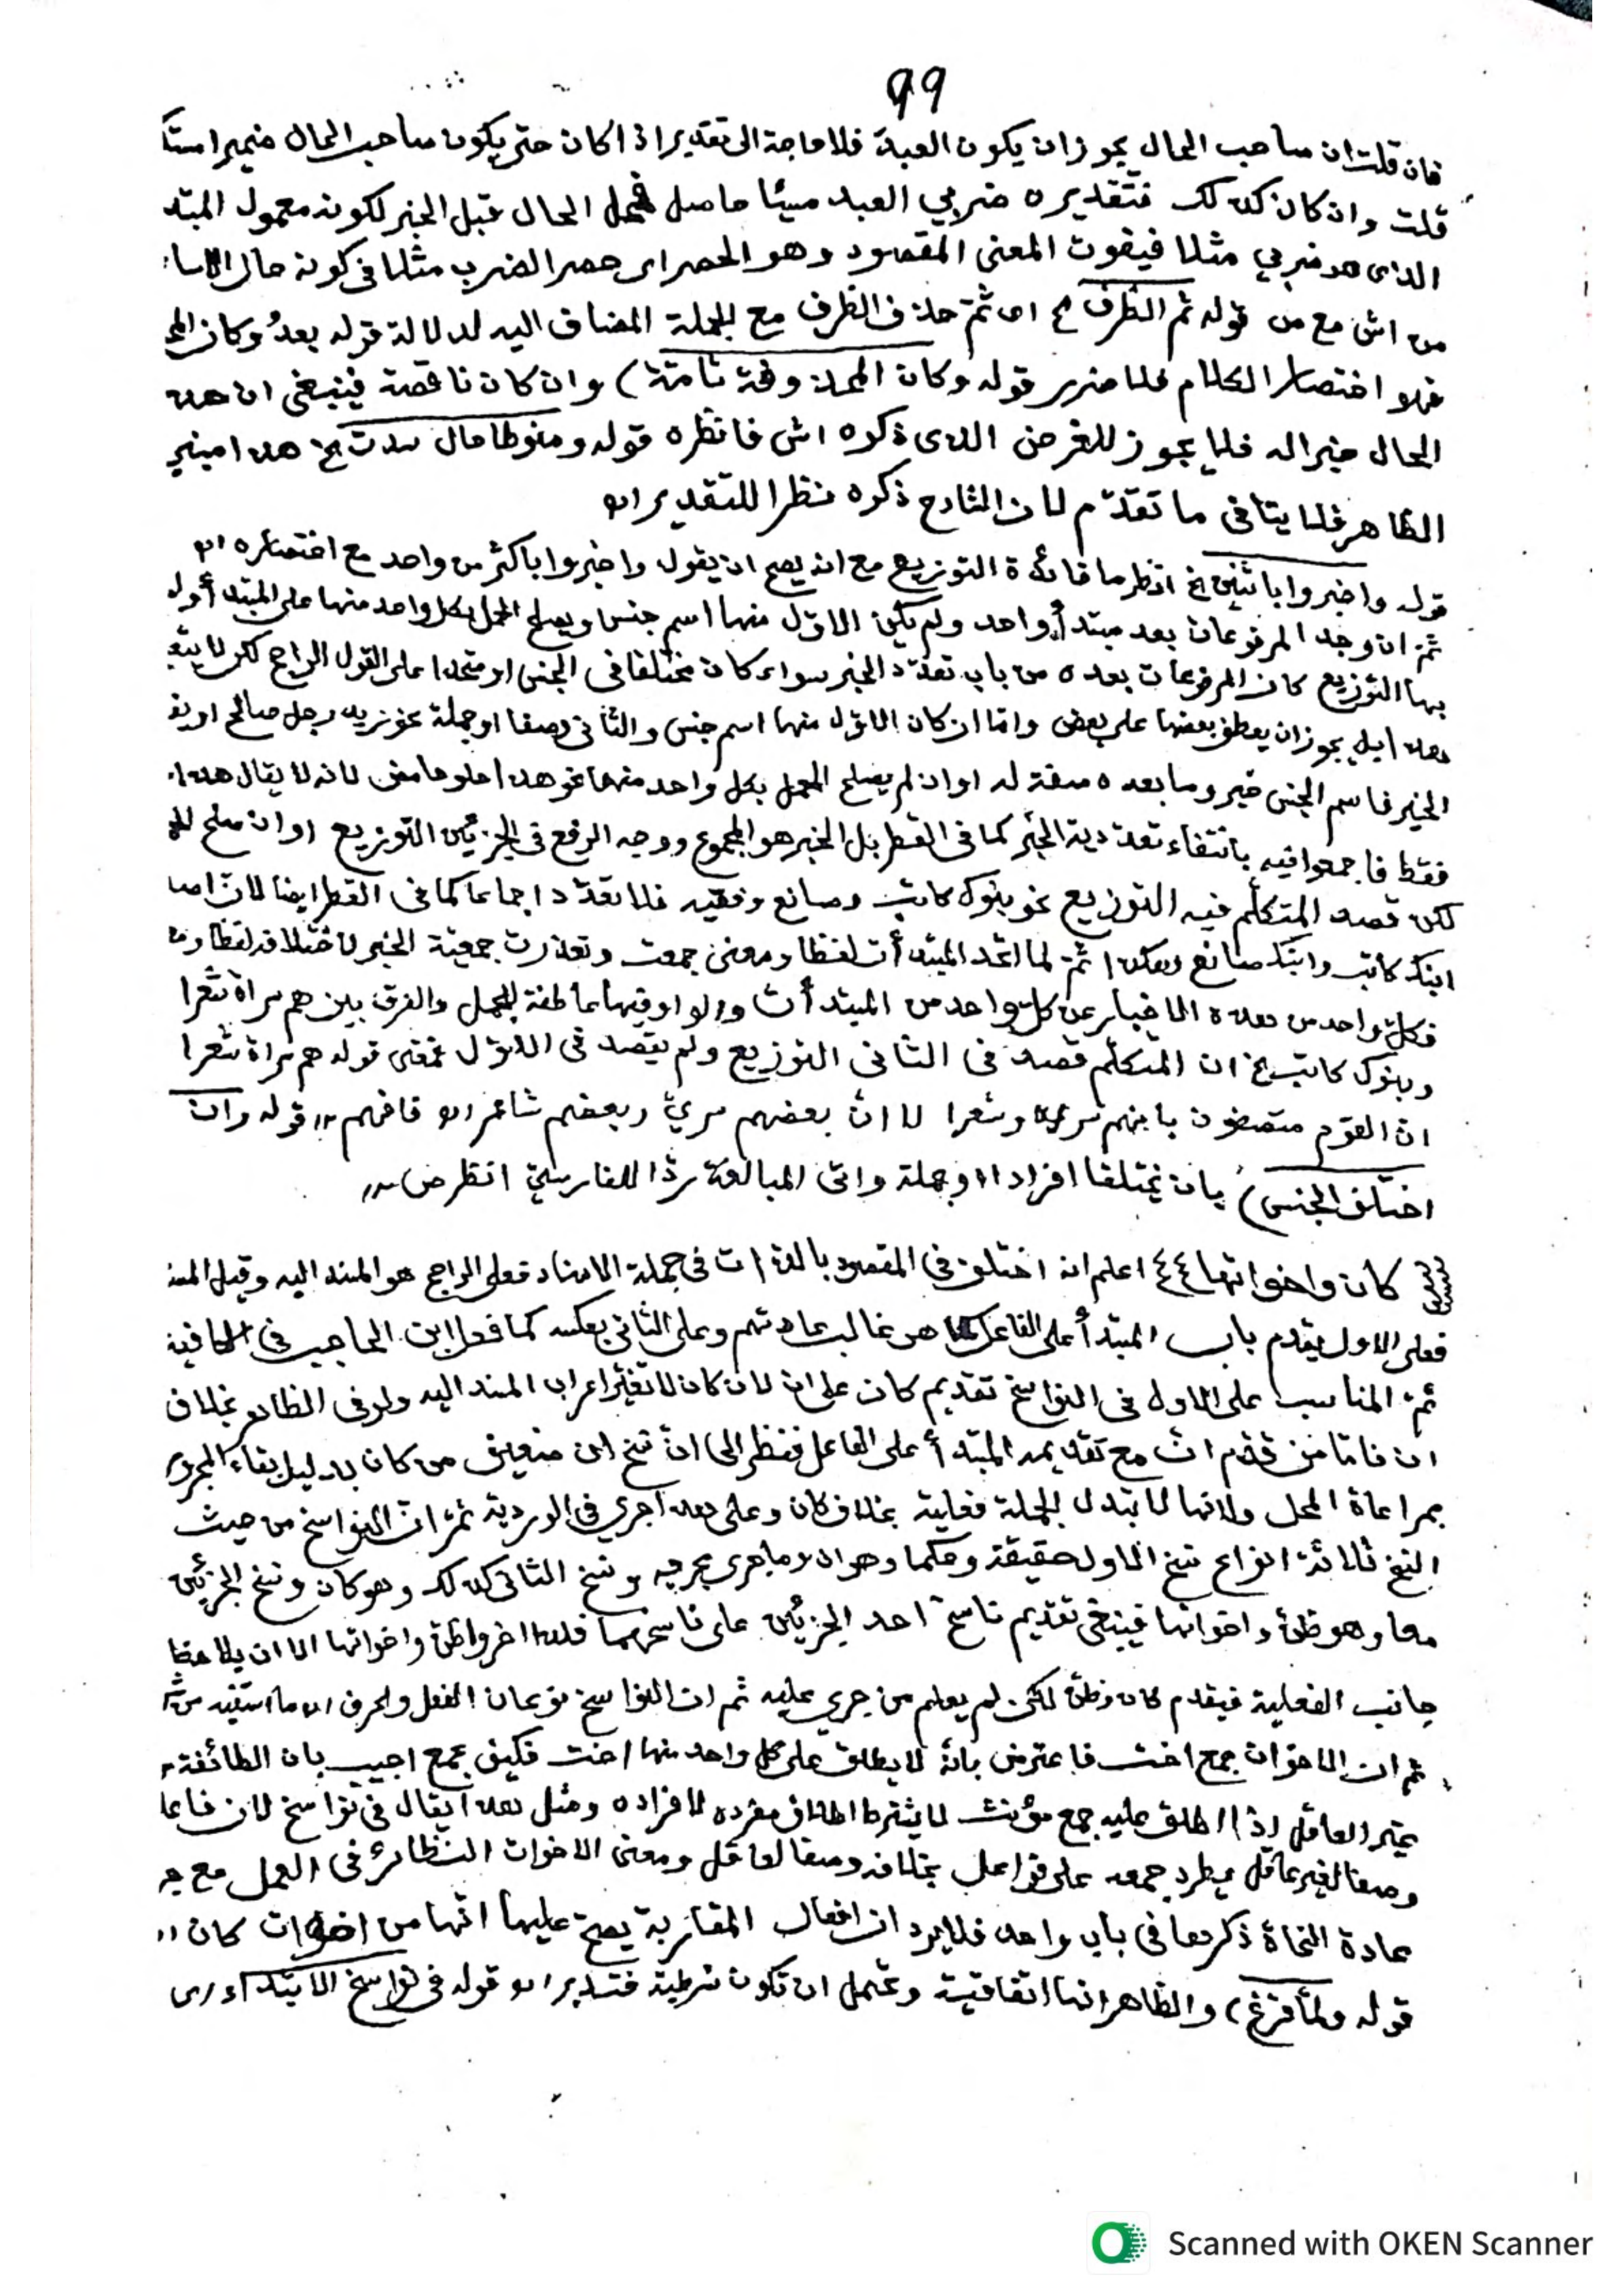 99
فان قلت ان صاحب الحال يجوز ان يكون العبد فلا حاجة الى تقدير اذا كان حتى يكون صاحب الحال ضميرا
قلت وان كان كذلك فتقديره ضربي العبد مسيئا حاصل الحال قبل الخبر لكونه معمول المبتد
الذى هو ضربي مثلا فيفوت المعنى المقصود وهو الحصر اى حصر الضرب مثلا فى كونه حال
من اش مع من قوله ثم الظرف الخ اى ثمّ حذف الظرف مع الجملة المضاف اليه لدلالة قوله بعدُ وكان
اختصار الكلام فلا ضرر قوله وكان المحذوفة تامّة) وان كان ناقصة فينبغى ان
الحال خبرا له فلا يجوز للغرض الذى ذكره اش فانظره قوله ومنوطا حال سدت الخ هذا
الظاهر فلا ينافى ما تقدّم لان الشارح ذكره نظرا للتقدير اه
قوله واخبروا باثنين الخ انظر ما فائدة التوزيع مع انه يصح ان يقول واخبروا باكثر من واحد مع اختصاره اه
ثمّ ان وجد المرفوعان بعد مبتدأ واحد ولم يكن الاوّل منها اسم جنس ويصلح الحمل بكل واحد منها على المبتدأ
بها التوزيع كان المرفوعات بعده من باب تعدّد الخبر سواء كان مختلفا فى الجنس او متحدا على القول الراجح لكن لا
هذا بل يجوز ان يعطف بعضها على بعض وامّا ان كان الاوّل منها اسم جنس والثانى وصفا او جملة نحو زيد رجل صالح او
الخير فاسم الجنس خبر وما بعده صفة له او ان لم يصلح الحمل بكل واحد منهما نحو هذا حلو حامض لانه لا يقال هذا
فقط فاجمعوا فيه بانتفاء تعددية الخبر كما فى القطر بل الخبر هو المجموع ووجه الرفع فى الجزئين التوزيع او ان صلح
لكن قصد المتكلّم فيه التوزيع نحو بنوك كاتب وصانع وفقيه فلا تعدّد اجماعا كما فى القطر ايضا لانّ
ابنك كاتب وابنك صانع وهكذا ثمّ لما اتحد المبتدأت لفظا ومعنى جمعت وتعذرت جمعيّة الخبر لاختلافه لفظا
فكلّ واحد من هذه الاخبار عن كلّ واحد من المبتدأت والواو فيها عاطفة للجمل والفرق بين هم سراة شعرا
وبنوك كاتب الخ ان المتكلّم قصد فى الثانى التوزيع ولم يقصد فى الاوّل فمعنى قوله هم سراة شعرا
انّ القوم متصفون بانهم سراة وشعرا لا انّ بعضهم سريّ وبعضهم شاعر اه فافهم قوله وان
اختلف الجنس) بان يختلفا افرادا وجملة واتى المبالغة ردّا للفارسيّ انظر ص
كان واخواتها اعلم انه اختلف فى المقصود بالذات فى جملة الاسناد فعلى الراجح هو المسند اليه وقيل المسند
فعلى الاول يقدم باب المبتدأ على الفاعل كما هو غالب عادتهم وعلى الثانى بعكسه كما فعل ابن الحاجب فى الكافية
ثمّ المناسب على الاول فى النواسخ تقديم كان على انّ لان كان لا تغيّر اعراب المسند اليه ولو فى الظاهر بخلاف
ان فامّا من قدّم انّ مع تقديمه المبتدأ على الفاعل فنظر الى انّ نسخ انّ ضعيف من كان بدليل بقاء
بمراعاة المحل ولانها لا تبدل الجملة فعلية بخلاف كان وعلى هذا جري فى الوردية ثمّ انّ النواسخ من حيث
النسخ ثلاثة انواع نسخ الاول حقيقة وحكما وهو انّ وما جرى مجريه ونسخ الثانى كذلك وهو كان ونسخ الجزئين
معا وهو ظنّ واخواتها فينبغى تقديم ناسخ احد الجزئين على ناسخهما فلذا اخروا ظن واخواتها الا ان يلاحظ
جانب الفعلية فيقدم كان وظنّ لكن لم يعلم من جري عليه ثم ان النواسخ نوعان الفعل والحرف اه ما استفيد من
ثم ان الاخوات جمع اخت فاعترض بانّه لا يطلق على كل واحد منها اخت فكيف يجمع اجيب بان الطائفة
غير العاقل اذا اطلق عليه جمع مؤنث لا يشترط اطلاق مفرده لافراده ومثل هذا يقال فى نواسخ لان
وصفا لغير عاقل يطرد جمعه على فواعل بخلافه وصفا لعاقل ومعنى الاخوات النظائر فى العمل مع
عادة النحاة ذكرها فى باب واحد فلا يرد ان افعال المقاربة يصح عليها انها من اخوات كان
قوله ولمّا فرغ) والظاهر انها اتفاقية ويحتمل ان تكون شرطية فتدبر اه قوله فى نواسخ الابتداء
Scanned with OKEN Scanner